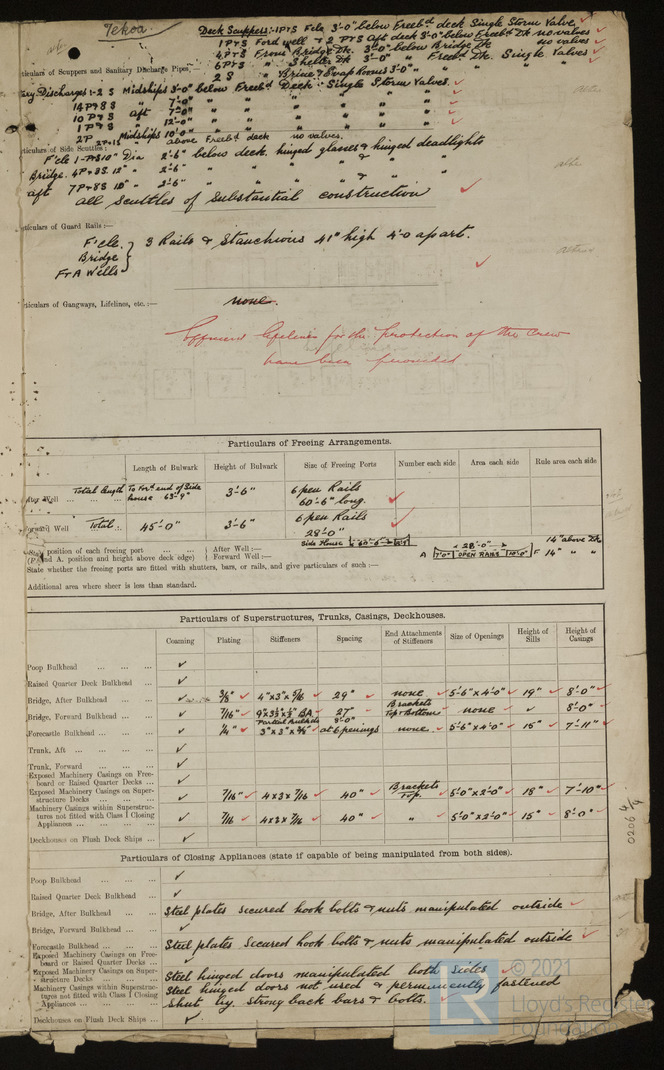 Tekoa.
Deck Scuppers:- 1 P&S F'cle 3'-0" below Freebd deck Single Storm Valve ✓
1 P&S Ford well & 2 P&S Aft deck 3'-0" below Freebd Dk no valves ✓
4 P&S From Bridge Dk. 3'-0" below Bridge Dk no valves ✓
ticulars of Scuppers and Sanitary Discharge Pipes, 6 P&S " Shelter Dk 3'-0" " Freebd Dk. Single Valves ✓
2 S " Brine & Evap Rooms 3'-0" " " " " " ✓
Discharges:- 2 S Midships 3'-0" below Freebd Deck:- Single Storm Valves. ✓
14 P 9 8 S " 7'-0" " " " " " ✓
10 P 9 S aft 7'-0" " " " " " ✓
1 P 9 S " 12'-0" " " " " " ✓
2 P Midships 10'-0" above Freebd deck no valves.
ticulars of Side Scuttles:
F'cle 1-P&S 10" Dia 2'-6" below deck. hinged glasses & hinged deadlights
Bridge. 4P&8S 12" " 2'-6" " " " & "
aft 7P&8S 10" " 2'-6" " " " & "
all Scuttles of Substantial construction ✓
ticulars of Guard Rails:—
F'cle. } 3 Rails & Stanchions 41" high 4'-0 apart.
Bridge
F & A Wells ✓
ticulars of Gangways, Lifelines, etc.:— none.
Efficient lifelines for the protection of the Crew
have been provided
Particulars of Freeing Arrangements.
Length of Bulwark Height of Bulwark Size of Freeing Ports Number each side Area each side Rule area each side
After Well ... Total length To Ford end of Side house 63'-9" 3'-6" Open Rails 60'-6" long. ✓
Forward Well Total :- 45'-0" 3'-6" Open Rails 28'-0" ✓
position of each freeing port ... ... ... After Well :— Side House 60'-6" 14" above Dk
(F and A. position and height above deck edge) Forward Well :— A 7'0" 28'-0" OPEN RAILS 10'-0" F 14" " "
State whether the freeing ports are fitted with shutters, bars, or rails, and give particulars of such :—
Additional area where sheer is less than standard.
Particulars of Superstructures, Trunks, Casings, Deckhouses.
Coaming Plating Stiffeners Spacing End Attachments of Stiffeners Size of Openings Height of Sills Height of Casings
Poop Bulkhead ... ... ... ✓
Raised Quarter Deck Bulkhead ... ✓
Bridge, After Bulkhead ... ... ✓ 3/8" ✓ 4"x3"x 5/16 ✓ 29" ✓ none ✓ 5'-6"x4'-0" ✓ 19" ✓ 8'-0" ✓
Bridge, Forward Bulkhead ... ... ✓ 7/16" ✓ 9"x3½"x½" BA ✓ 27" ✓ Brackets Top & Bottom ✓ none ✓ ✓ 8'-0" ✓
Forecastle Bulkhead ... ... ... ✓ ¼" ✓ Partial Bulkhds 3"x3"x ✓ 8'-0" at 6 penings none ✓ 5'-6"x4'-0" ✓ 15" ✓ 7'-11" ✓
Trunk, Aft ... ... ... ... ✓
Trunk, Forward ... ... ... ... ✓
Exposed Machinery Casings on Free-
board or Raised Quarter Decks ... ✓
Exposed Machinery Casings on Super-
structure Decks ... ... ... ✓ 7/16" ✓ 4x3x 7/16 ✓ 40" ✓ Brackets Top. ✓ 5'-0"x2'-0" ✓ 18" ✓ 7'-10" ✓
Machinery Casings within Superstruc-
tures not fitted with Class I Closing
Appliances ... ... ... ... ✓ 7/16 ✓ 4x3x 7/16 ✓ 40" ✓ " ✓ 5'-0"x2'-0" ✓ 15" ✓ 8'-0" ✓
Deckhouses on Flush Deck Ships ... ✓
0206 4/4
Particulars of Closing Appliances (state if capable of being manipulated from both sides).
Poop Bulkhead ... ... ... ✓
Raised Quarter Deck Bulkhead ... ✓
Bridge, After Bulkhead ... ... Steel plates secured hook bolts & nuts manipulated outside ✓
Bridge, Forward Bulkhead ... ... ✓
Forecastle Bulkhead ... ... ... Steel plates secured hook bolts & nuts manipulated outside ✓
Exposed Machinery Casings on Free-
board or Raised Quarter Decks ... ✓
Exposed Machinery Casings on Super-
structure Decks ... ... ... Steel hinged doors manipulated both sides ✓
Machinery Casings within Superstruc-
tures not fitted with Class I Closing
Appliances ... ... ... ... Steel hinged doors not used & permanently fastened
shut by strong back bars & bolts. ✓
Deckhouses on Flush Deck Ships ... ✓
© 2021
Lloyd's Register
Foundation